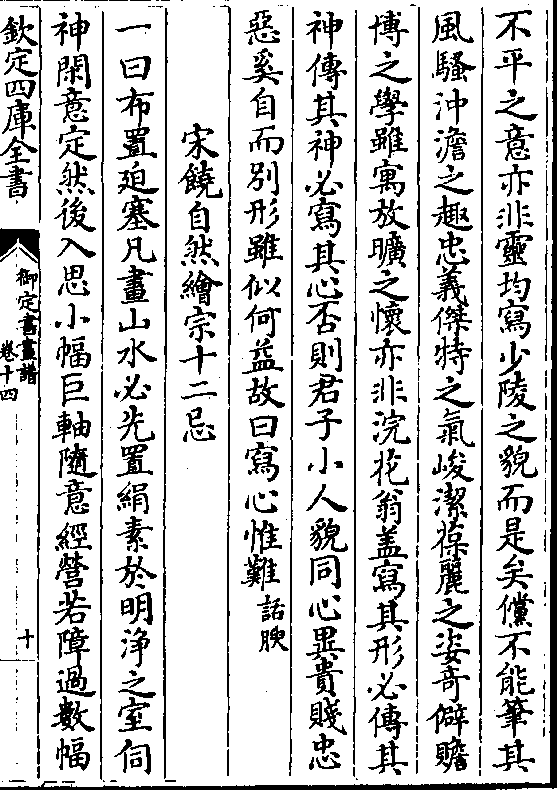 不平之意亦非靈均寫少陵之貌而是矣儻不能筆其
風騷沖澹之趣忠義傑特之氣峻潔葆麗之姿奇僻贍
博之學雖寓放曠之懷亦非浣花翁蓋寫其形必傳其
神傳其神必寫其心否則君子小人貌同心異貴賤忠
惡奚自而別形雖似何益故曰寫心惟難話腴
宋饒自然繪宗十二忌
一曰布置廹塞凡畫山水必先置絹素於明浄之室伺
神閑意定然後入思小幅巨軸隨意經營若障過數幅
欽定四庫全書
御定書畫譜
卷十四
十